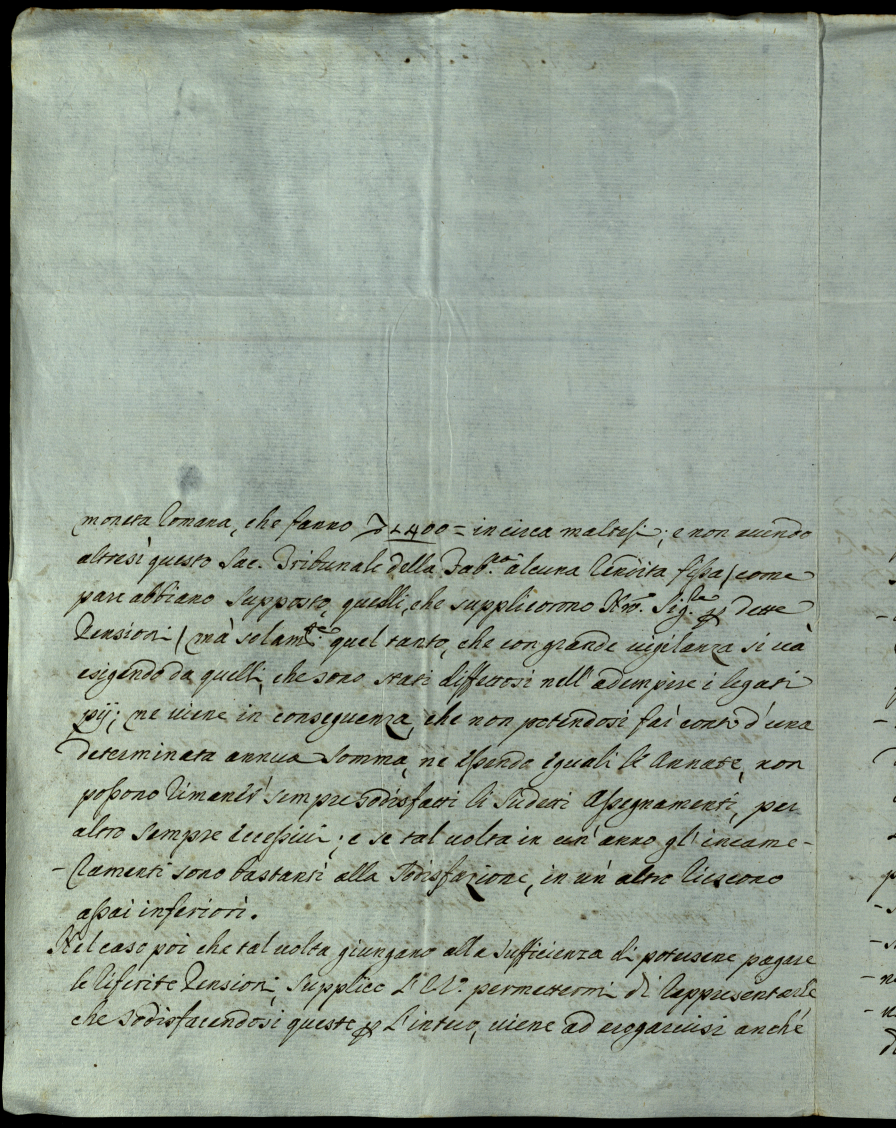 moneta Romana, che fanno 1400 = in circa maltesi; e non avendo
altresì questo Sac. Tribunale della Fab.ca alcuna Rendita fissa / come
pare abbiano supposto quelli, che supplicorono per dette
Pensioni / mà solam.te quel tanto, che con grande vigilanza si và
esigendo da quelli, che sono stati difettosi nell' adempire i legati
pij; ne viene in conseguenza, che non potendosi far conto d'una
determinata annua somma, ne essendo eguali le Annate, non
possono rimaner sempre sodisfatti li sudetti Assegnamenti, per
altro sempre eccessivi; e se tal volta in un' anno gl' incame-
-ramenti sono bastanti alla sodisfazione, in un' altro riescono
assai inferiori.
Nel caso poi che tal volta giungano alla sufficienza di potersene pagare
le riferite Pensioni, supplico l' permettermi di rappresentarle
che sodisfacendosi queste per l'intero, viene ad erogarvisi anche